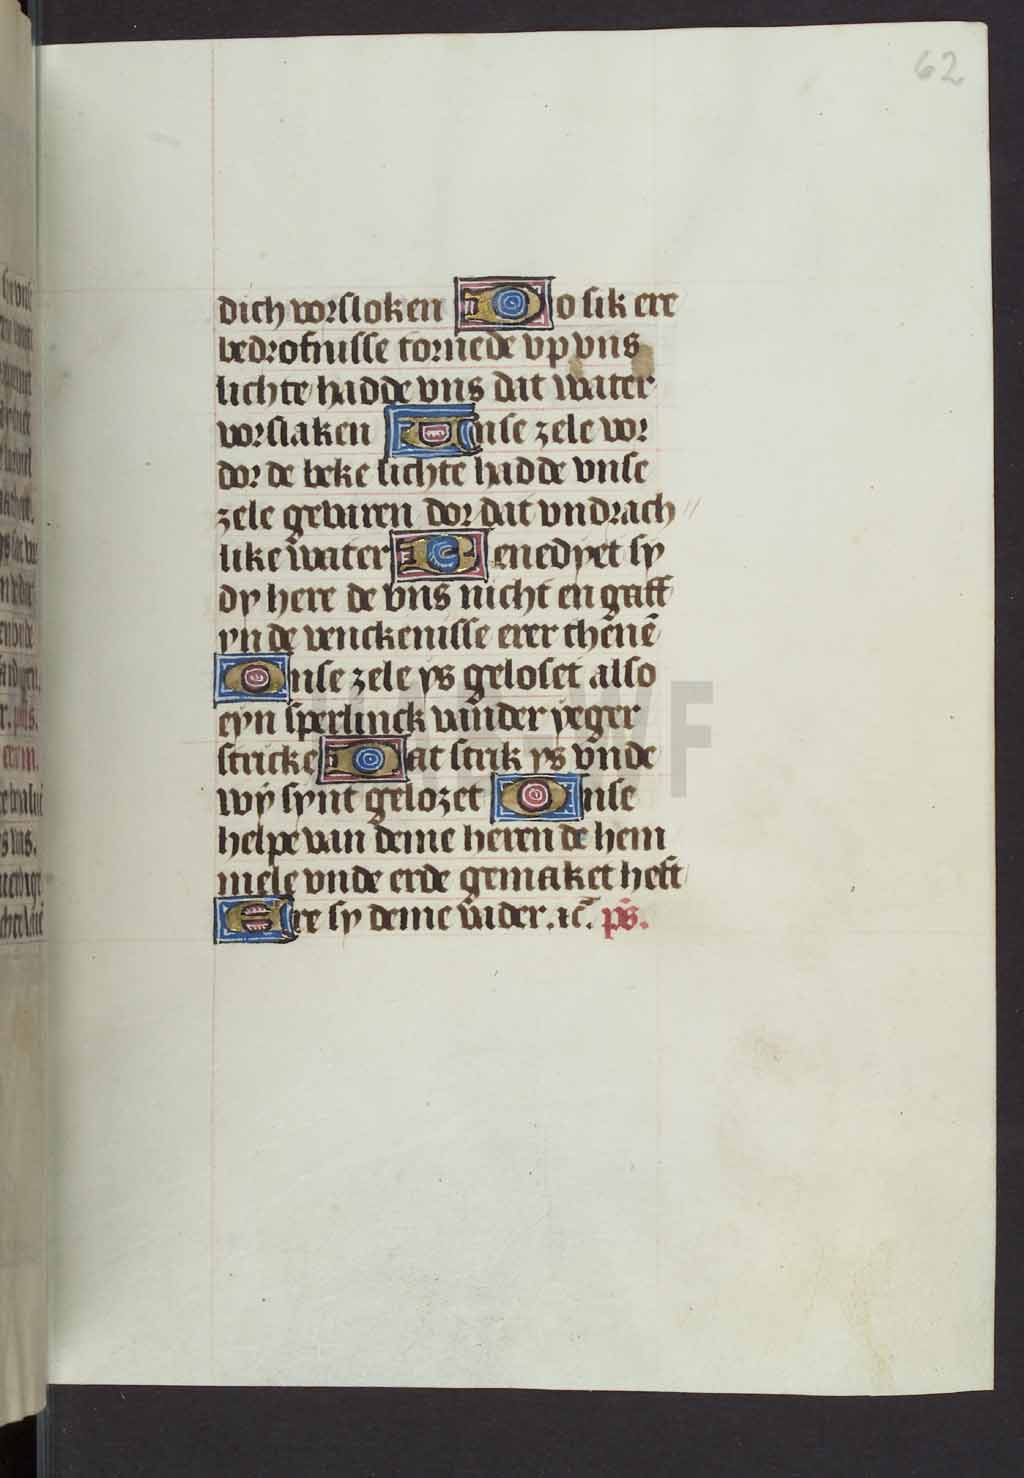 62
dich vorsloken Do sik ere
bedrofnisse tornede vp vns
lichte hadde vns dat water
vorslaken Vnse zele vor
dor de beke lichte hadde vnse
zele gevaren dor dat vndrach//
like water Benedyet sy
dy here de vns nicht en gaff
yn de venckenisse erer thēnē
Onse zele ys geloset also
eyn sperlinck van der yeger
stricke Dat strik ys vnde
wy synt gelozet Onse
helpe van deme heren de hem
mele vnde erde gemaket heft
Ere sy deme vader. ⁊c̄. p̄s.
HAB-WF